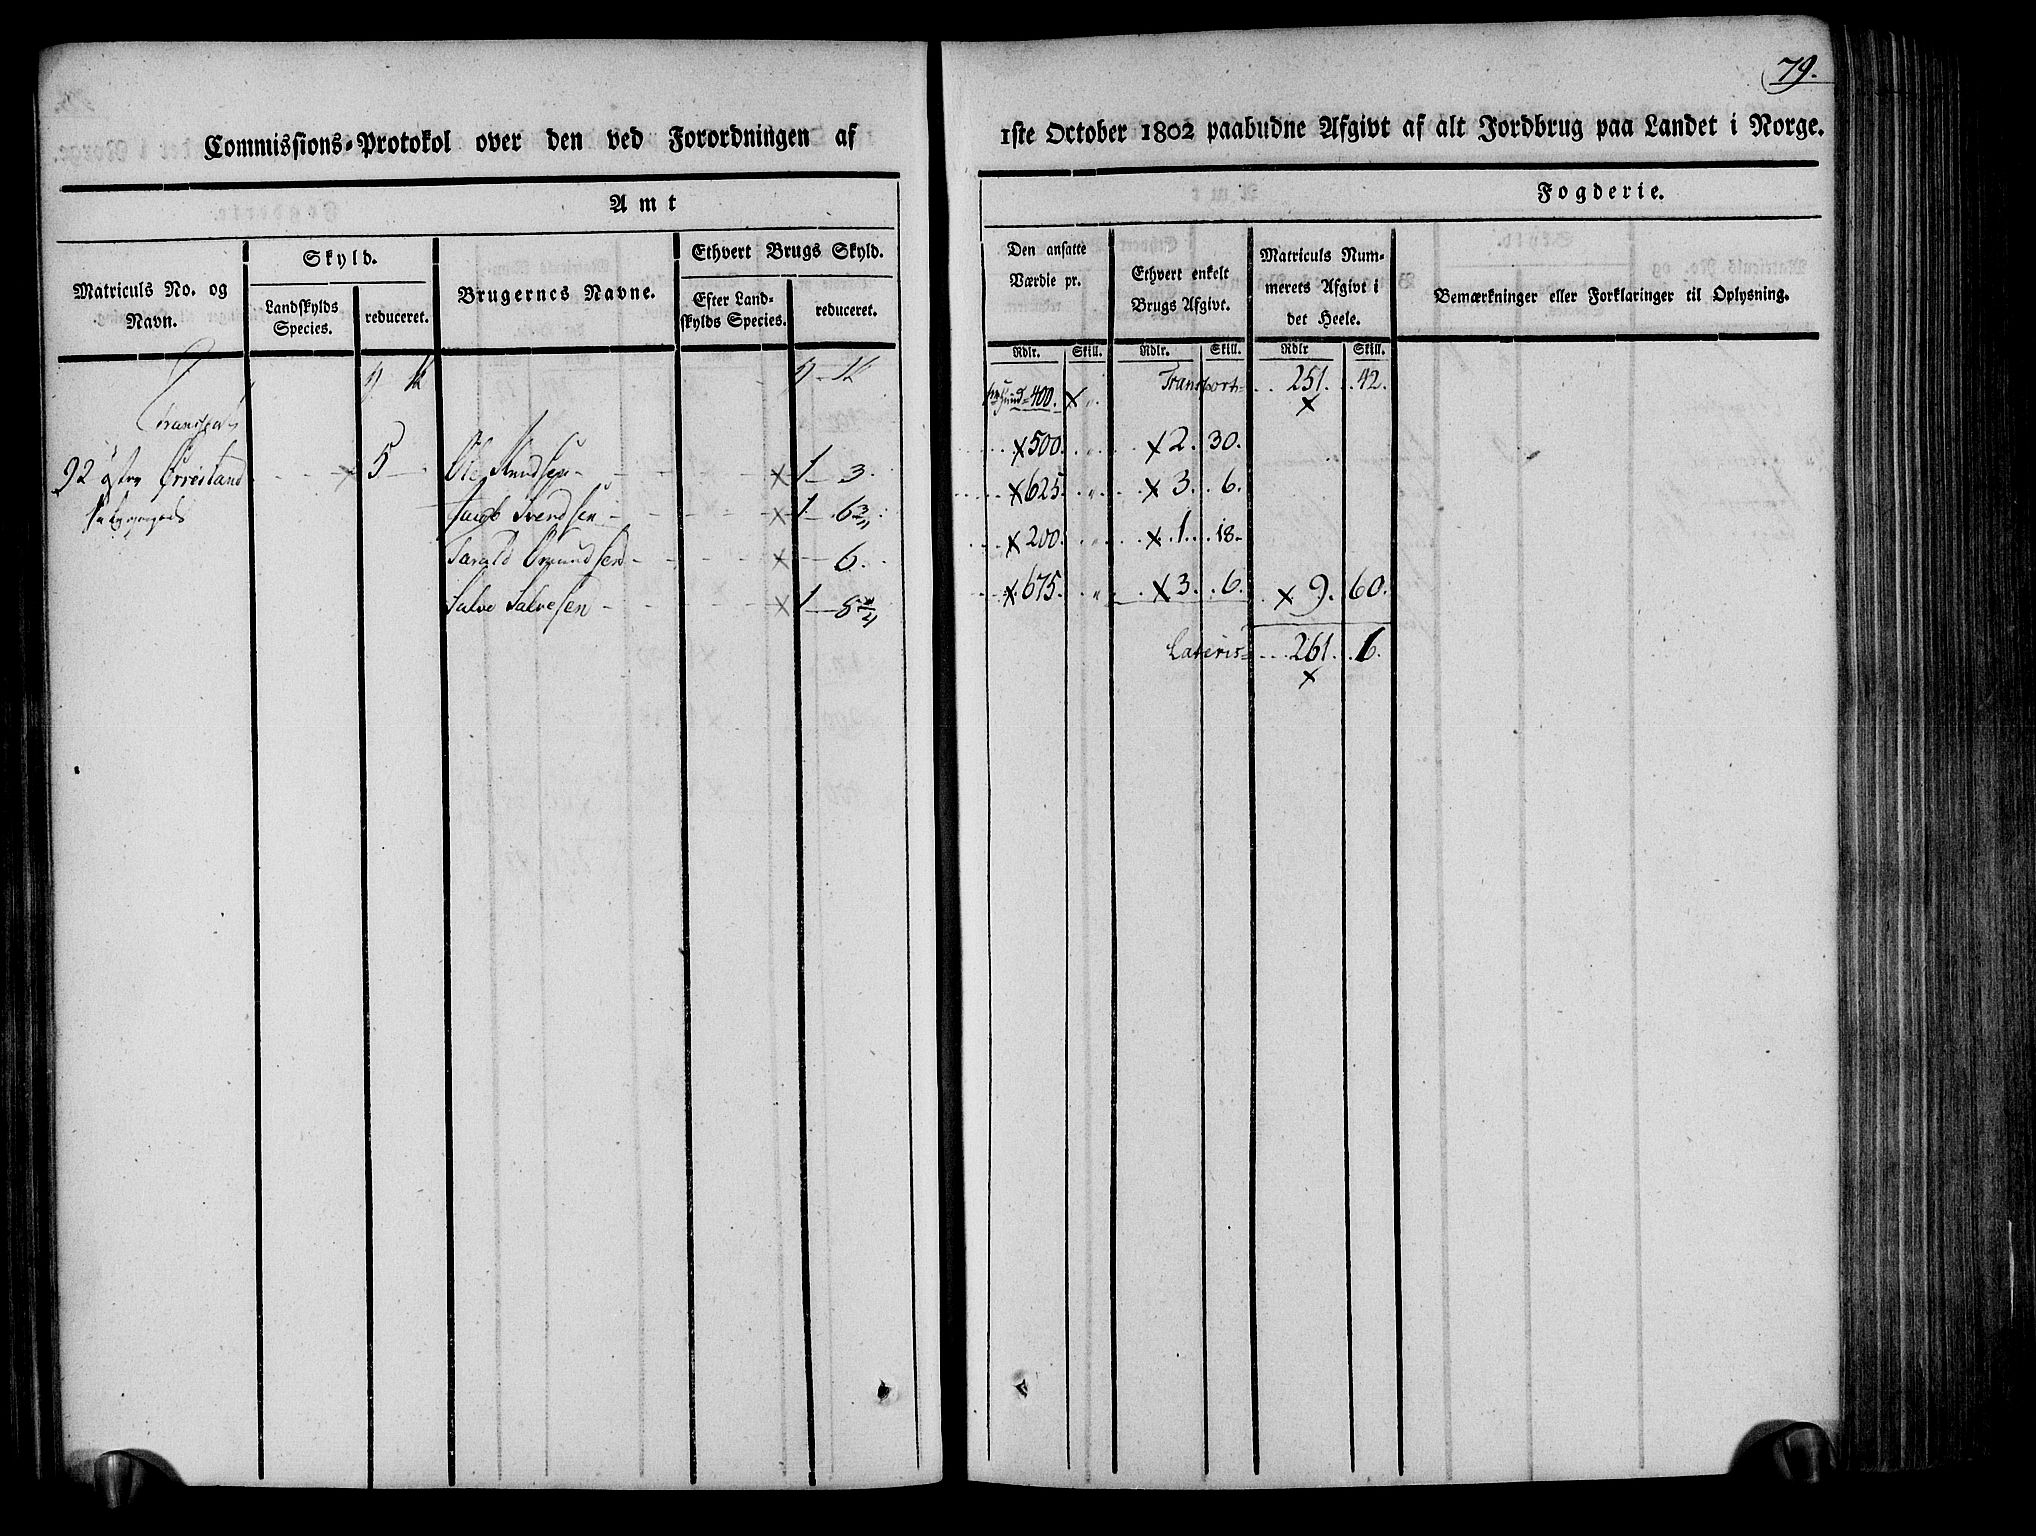 79.
Commissions-Protokol over den ved Forordningen af
1ste October 1802 paabudne Afgivt af alt Jordbrug paa Landet i Norge.
Amt
Fogderie.
Matriculs No. og Navn.
Skyld.
Landskylds Species.
reduceret.
Brugernes Navne.
Ethvert Brugs Skyld.
Efter Landskylds Species.
reduceret.
Den ansatte Værdie pr.
Ethvert enkelt Brugs Afgivt.
Matriculs Nummerets Afgivt i det Heele.
Bemærkninger eller Forklaringer til Oplysning.
Rdlr. Skill. Rdlr. Skill. Rdlr Skill.
Transport
400. Transport 251. 42.
92 östre Ørreistand 5 Ole Knudsen 1 3. 500. 2. 30.
Jacob Svendsen 1 6 625. 3. 6.
Tarald Omundsen 6. 200. 1. 18.
Salve Salvesen 1 8 675. 3. 6. 9. 60.
Lateris 261. 6.